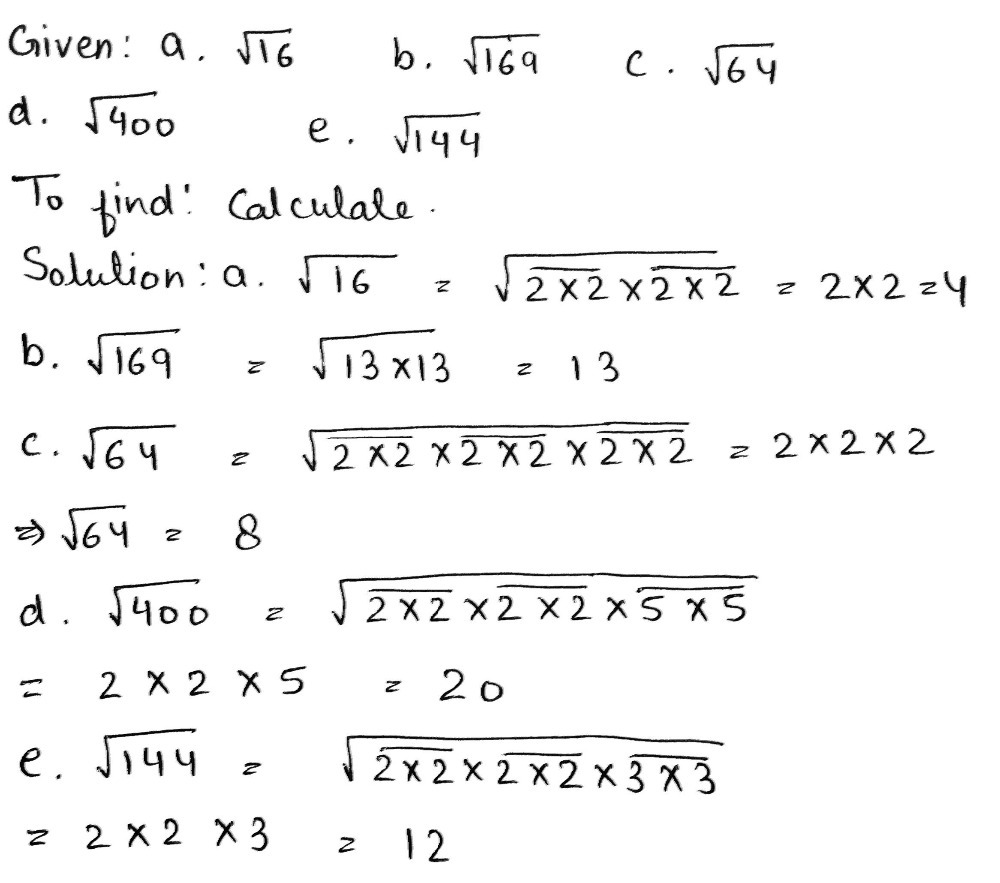 Given: a. √16 b. √169 c. √64
d. √400 e. √144
To find: Calculate.
Solution: a. √16 = √2×2×2×2 = 2×2=4
b. √169 = √13×13 = 13
c. √64 = √2×2×2×2×2×2 = 2×2×2
⇒ √64 = 8
d. √400 = √2×2×2×2×5×5
= 2×2×5 = 20
e. √144 = √2×2×2×2×3×3
= 2×2×3 = 12